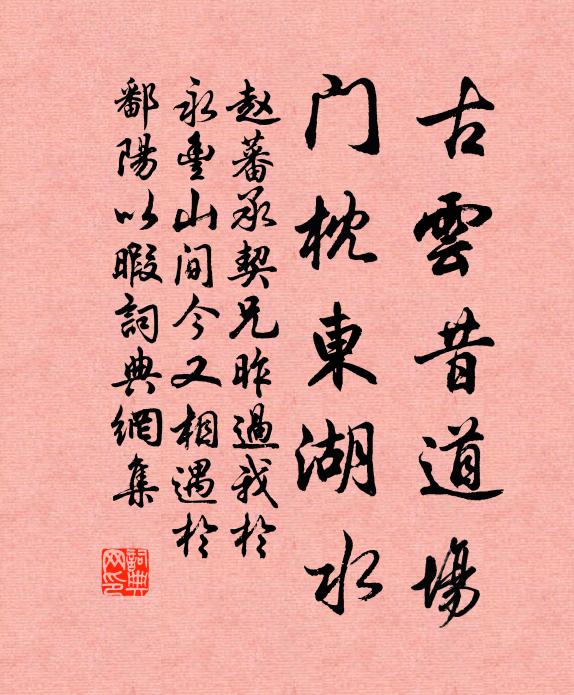 古雲昔道場
門枕東湖水
赵蕃承契兄昨過我於
永豐山间今又相遇於
鄱陽以暇詞典網集
詞典
网印